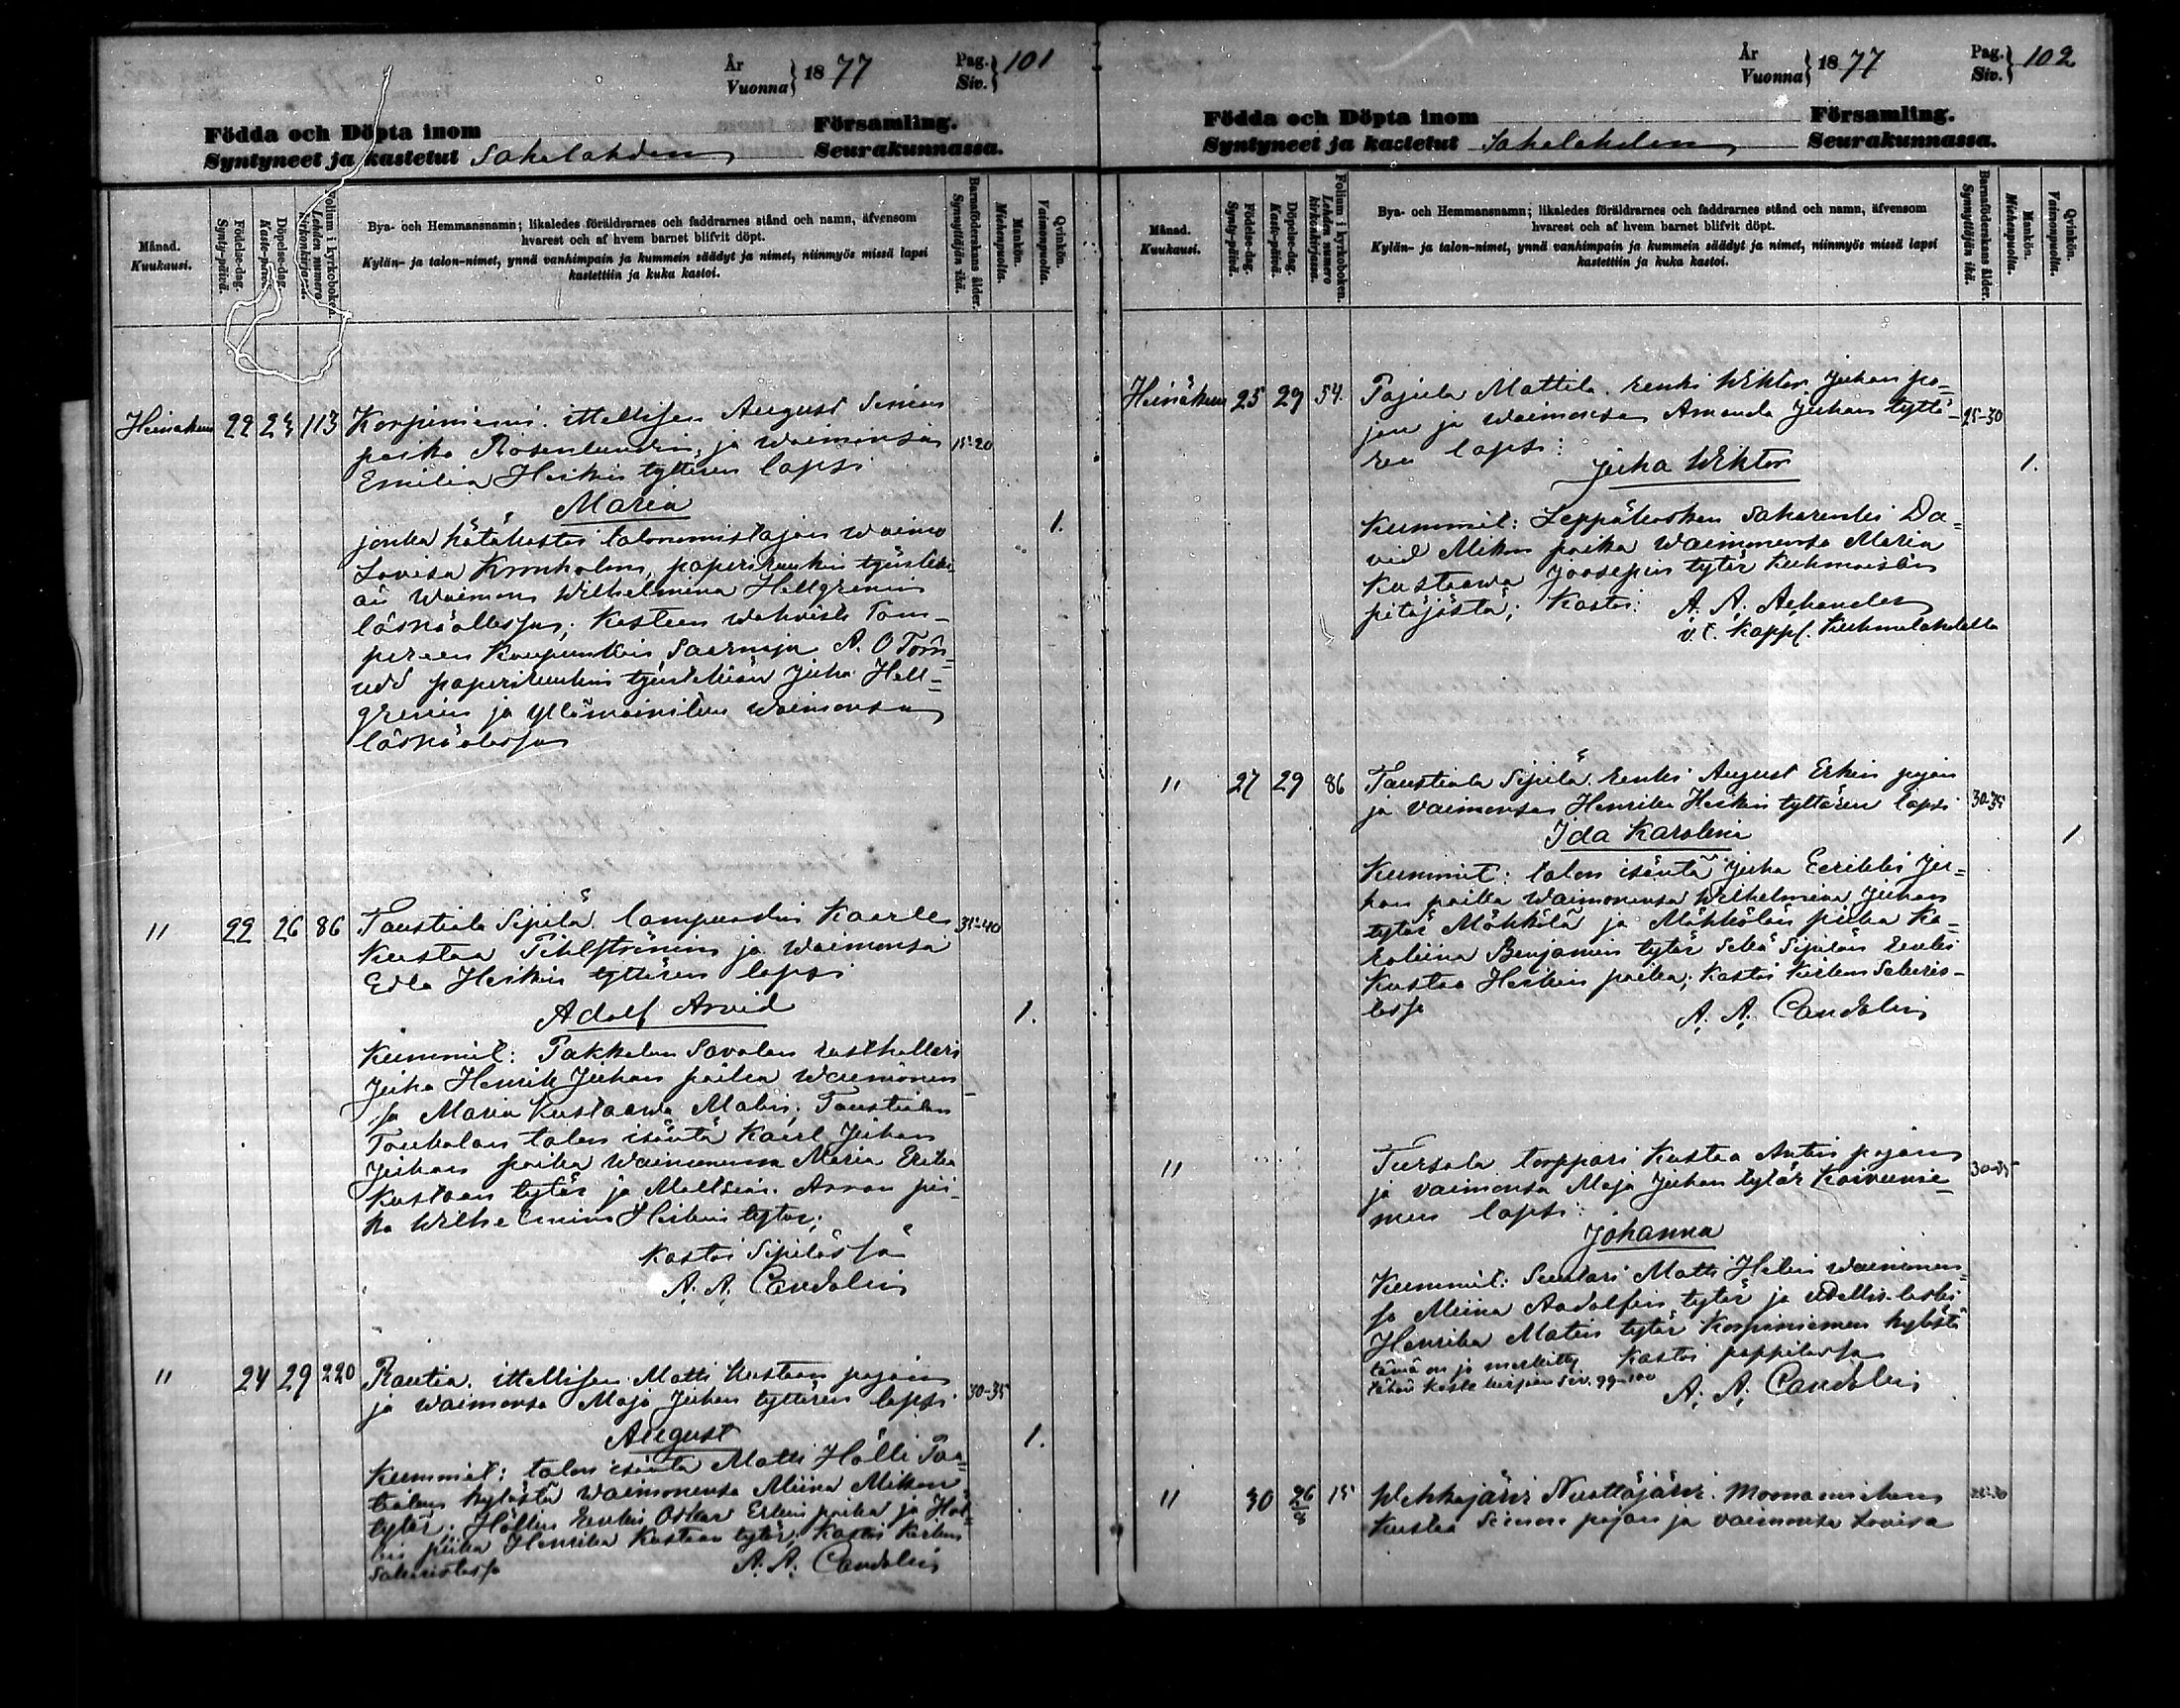 År
Vuonna } 1877
Pag.
Siv. } 101
Födda och Döpta inom Församling.
Syntyneet ja kastetut Sahalahden Seurakunnassa.
Månad.
Kuukausi.
Födelse-dag.
Synty-päivä.
Döpelse-dag.
Kaste-päivä.
Folium i kyrkoboken.
Lehden numero
kirkonkirjassa.
Bya- och Hemmansnamn; likaledes föräldrarnes och faddrarnes stånd och namn, äfvensom
hvarest och af hvem barnet blifvit döpt.
Kylän- ja talon-nimet, ynnä vanhimpain ja kummein säädyt ja nimet, niinmyös missä lapsi
kastettiin ja kuka kastoi.
Barnaföderskans ålder.
Synnyttäjän ikä.
Mankön.
Miehenpuolia.
Qvinkön.
Vaimonpuolia.
Heinäkuu 22 113 Korpiniemi. ittellisen August Simon
poika Rosenlundin, ja waimonsa 15-20
Emilia Heikin tyttären lapsi
Maria 1.
jonka hätäkastoi talonomistajan waimo
Lovisa Kronholm, paperiruukin työnteki-
än waimon Wilhelmina Hellgrenin
läsnäollessa; Kasteen wahvisti Tam-
pereen Kaupunkin Saarnaja A. O Törn-
udd paperiruukin työntekiän Juha Hell-
grenin ja yllämainitun waimonsa
läsnäollessa
" 22 26 86 Taustiala Sipilä. lampuodin Kaarle 35-40
Kustaa Pihlströmin ja waimonsa
Edla Heikin tyttären lapsi
Adolf Arvid 1.
Kummit: Pakkalan Savolan rusthollari
Juha Henrik Juhan poika waimonen-
sa Maria Kustaawa Matin; Taustialan
Toukolan talon isäntä Kaarl Juhan
Juhan poika waimonensa Maria Erika
Kustaan tytär ja Mattsin. Arran pii-
ka Wilhelmina Heikin tytär;
Kastoi Sipilässä
A. A. Candolin
" 24 29 220 Rautia. ittellisen Matti Kustaan pojan
ja waimonsa Maja Juhan tyttären lapsi 30-35
August 1.
Kummit: talon isäntä Matti Hölli Tau-
tialan kylästä waimonensa Miina Mikon
tytär. Höllin Renki Oskar Erkin poika ja Höl-
lin piika Henrika Kustaan tytär; Kastoi Kirkon
Sakaristossa A. A. Candolin
År
Vuonna } 1877
Pag.
Siv. } 102
Födda och Döpta inom Församling.
Syntyneet ja kastetut Sahalahden Seurakunnassa.
Månad.
Kuukausi.
Födelse-dag.
Synty-päivä.
Döpelse-dag.
Kaste-päivä.
Folium i kyrkoboken.
Lehden numero
kirkonkirjassa.
Bya- och Hemmansnamn; likaledes föräldrarnes och faddrarnes stånd och namn, äfvensom
hvarest och af hvem barnet blifvit döpt.
Kylän- ja talon-nimet, ynnä vanhimpain ja kummein säädyt ja nimet, niinmyös missä lapsi
kastettiin ja kuka kastoi.
Barnaföderskans ålder.
Synnyttäjän ikä.
Mankön.
Miehenpuolia.
Qvinkön.
Vaimonpuolia.
Heinäkuu 25 29 54. Pajula Mattila. Renki Wihtor Juhan po-
jan ja waimonsa Amanda Juhan tyttä- 25-30
ren lapsi:
Juha Wihtor 1.
Kummit: Leppäkosken Sakarenki Da-
vid Mikon poika Waimonensa Maria
Kustaawa Joosepin tytär Kuhmoisten
pitäjästä; Kastoi: A. A.
v.t. Kappl. Kuhmalahdella
" 27 29 86 Taustiala Sipilä. Renki August Erkin pojan
ja vaimonsa Henrika Heikin tyttären lapsi 30-35
Ida Karolina 1
Kummit: talon isäntä Juha Eerikki Ju-
han poika waimonensa Wilhelmina Juhan
tytär Mökkölä ja Mökkölän piika Ka-
roliina Benjamin tytär Sekä Sipilän Renki
Kustaa Heikin poika; Kastoi Kirkon Sakaris-
tossa A. A. Candolin
" Tursola torppari Kustaa Antin pojan
ja vaimonsa Maja Juhan tytär Koivunie- 30-35
men lapsi:
Johanna
Kummit: Suutari Matti Helin waimonen-
sa Miina Aadolfin tytär ja itellis-leski
Henrika Matin tytär Korpiniemen kylästä
tämä on jo merkitty Kastoi pappilassa
tähän kaste kirjaan Siv. 99-100 A. A. Candolin
" 30 26/8 15 Wehkajärvi Nuottajärvi. Moonamiehen
Kustaa Simon pojan ja vaimonsa Lovisa